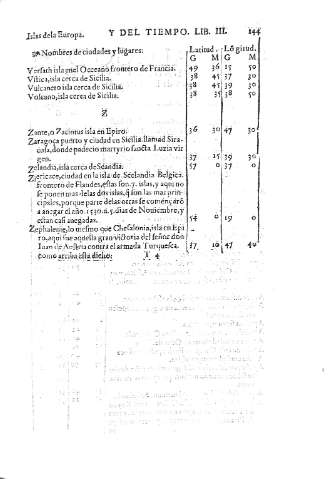 Islas dela Europa. Y DEL TIEMPO. LIB. III. 144
Nombres de ciudades y lugares. Latitud. Lōgitud.
G M G M
isla en el Occeano frontero de Francia. 49 36 15 50
Vstica, isla cerca de Sicilia. 38 45 37 30
Vulcanero isla cerca de Sicilia. 38 45 39 30
Vulcano, isla cerca de Sicilia. 38 35 38 50
Z
Zante, o Zacintus isla en Epiro. 36 30 47 30
Zaragoça puerto y ciudad en Sicilia llamad Sira-
cusa, donde padecio martyrio sancta Luzia vir
gen. 37 15 39 30
Zelandia, isla cerca de Scandia. 57 0 37 0
ciudad en la isla de Seelandia Belgica.
frontero de Flandes, estas son y. islas, y aqui no
se ponen mas delas dos islas, q̃ son las mas prin-
cipales, porque parte delas otras se començarō
a anegar el año 1530. a 5. dias de Nouiembre, y
estan casi anegadas. 54 0 19 0
lo mesmo que Chefalonia, isla en Epi
ro, aqui fue aquella gran victoria del señor don
Iuan de Austria contra el armada Turquesca. 37 10 47 40
como arriba esta dicho. T 4